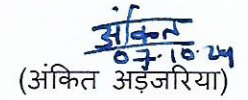 अंकित
07.10.24
(अंकित अड़जरिया)